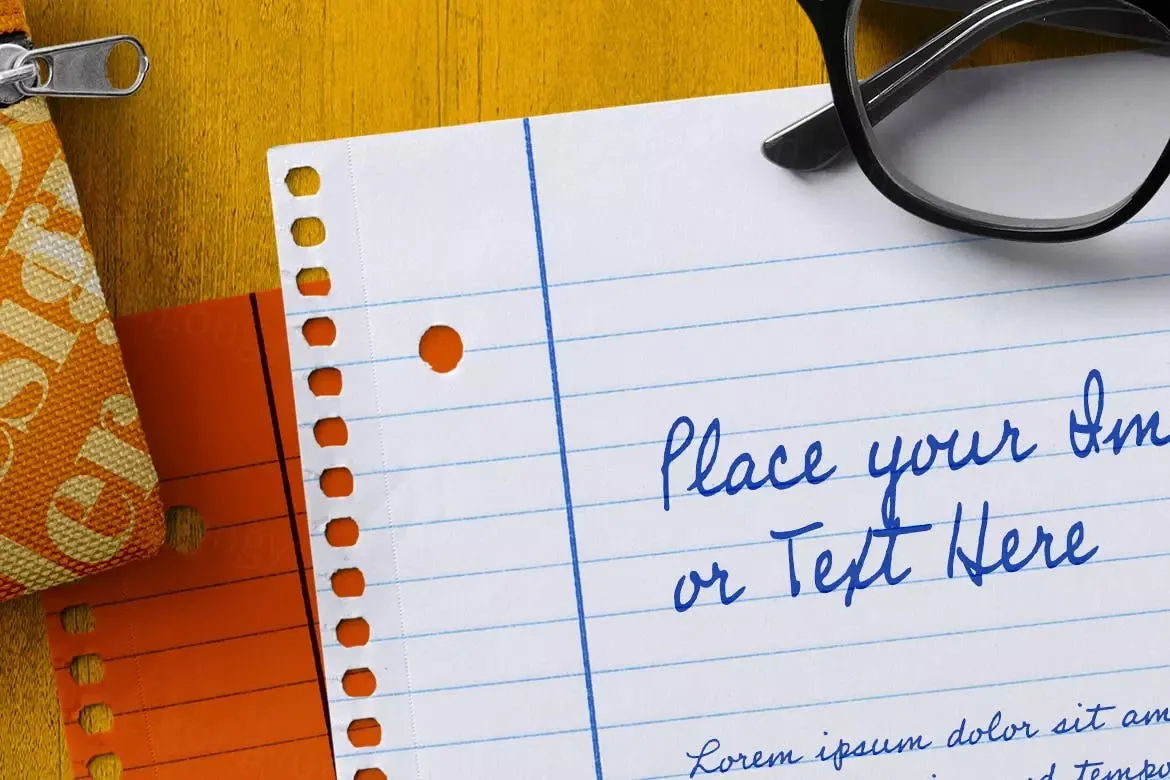 Place your Im
or Text Here
Lorem ipsum dolor sit am
tempo